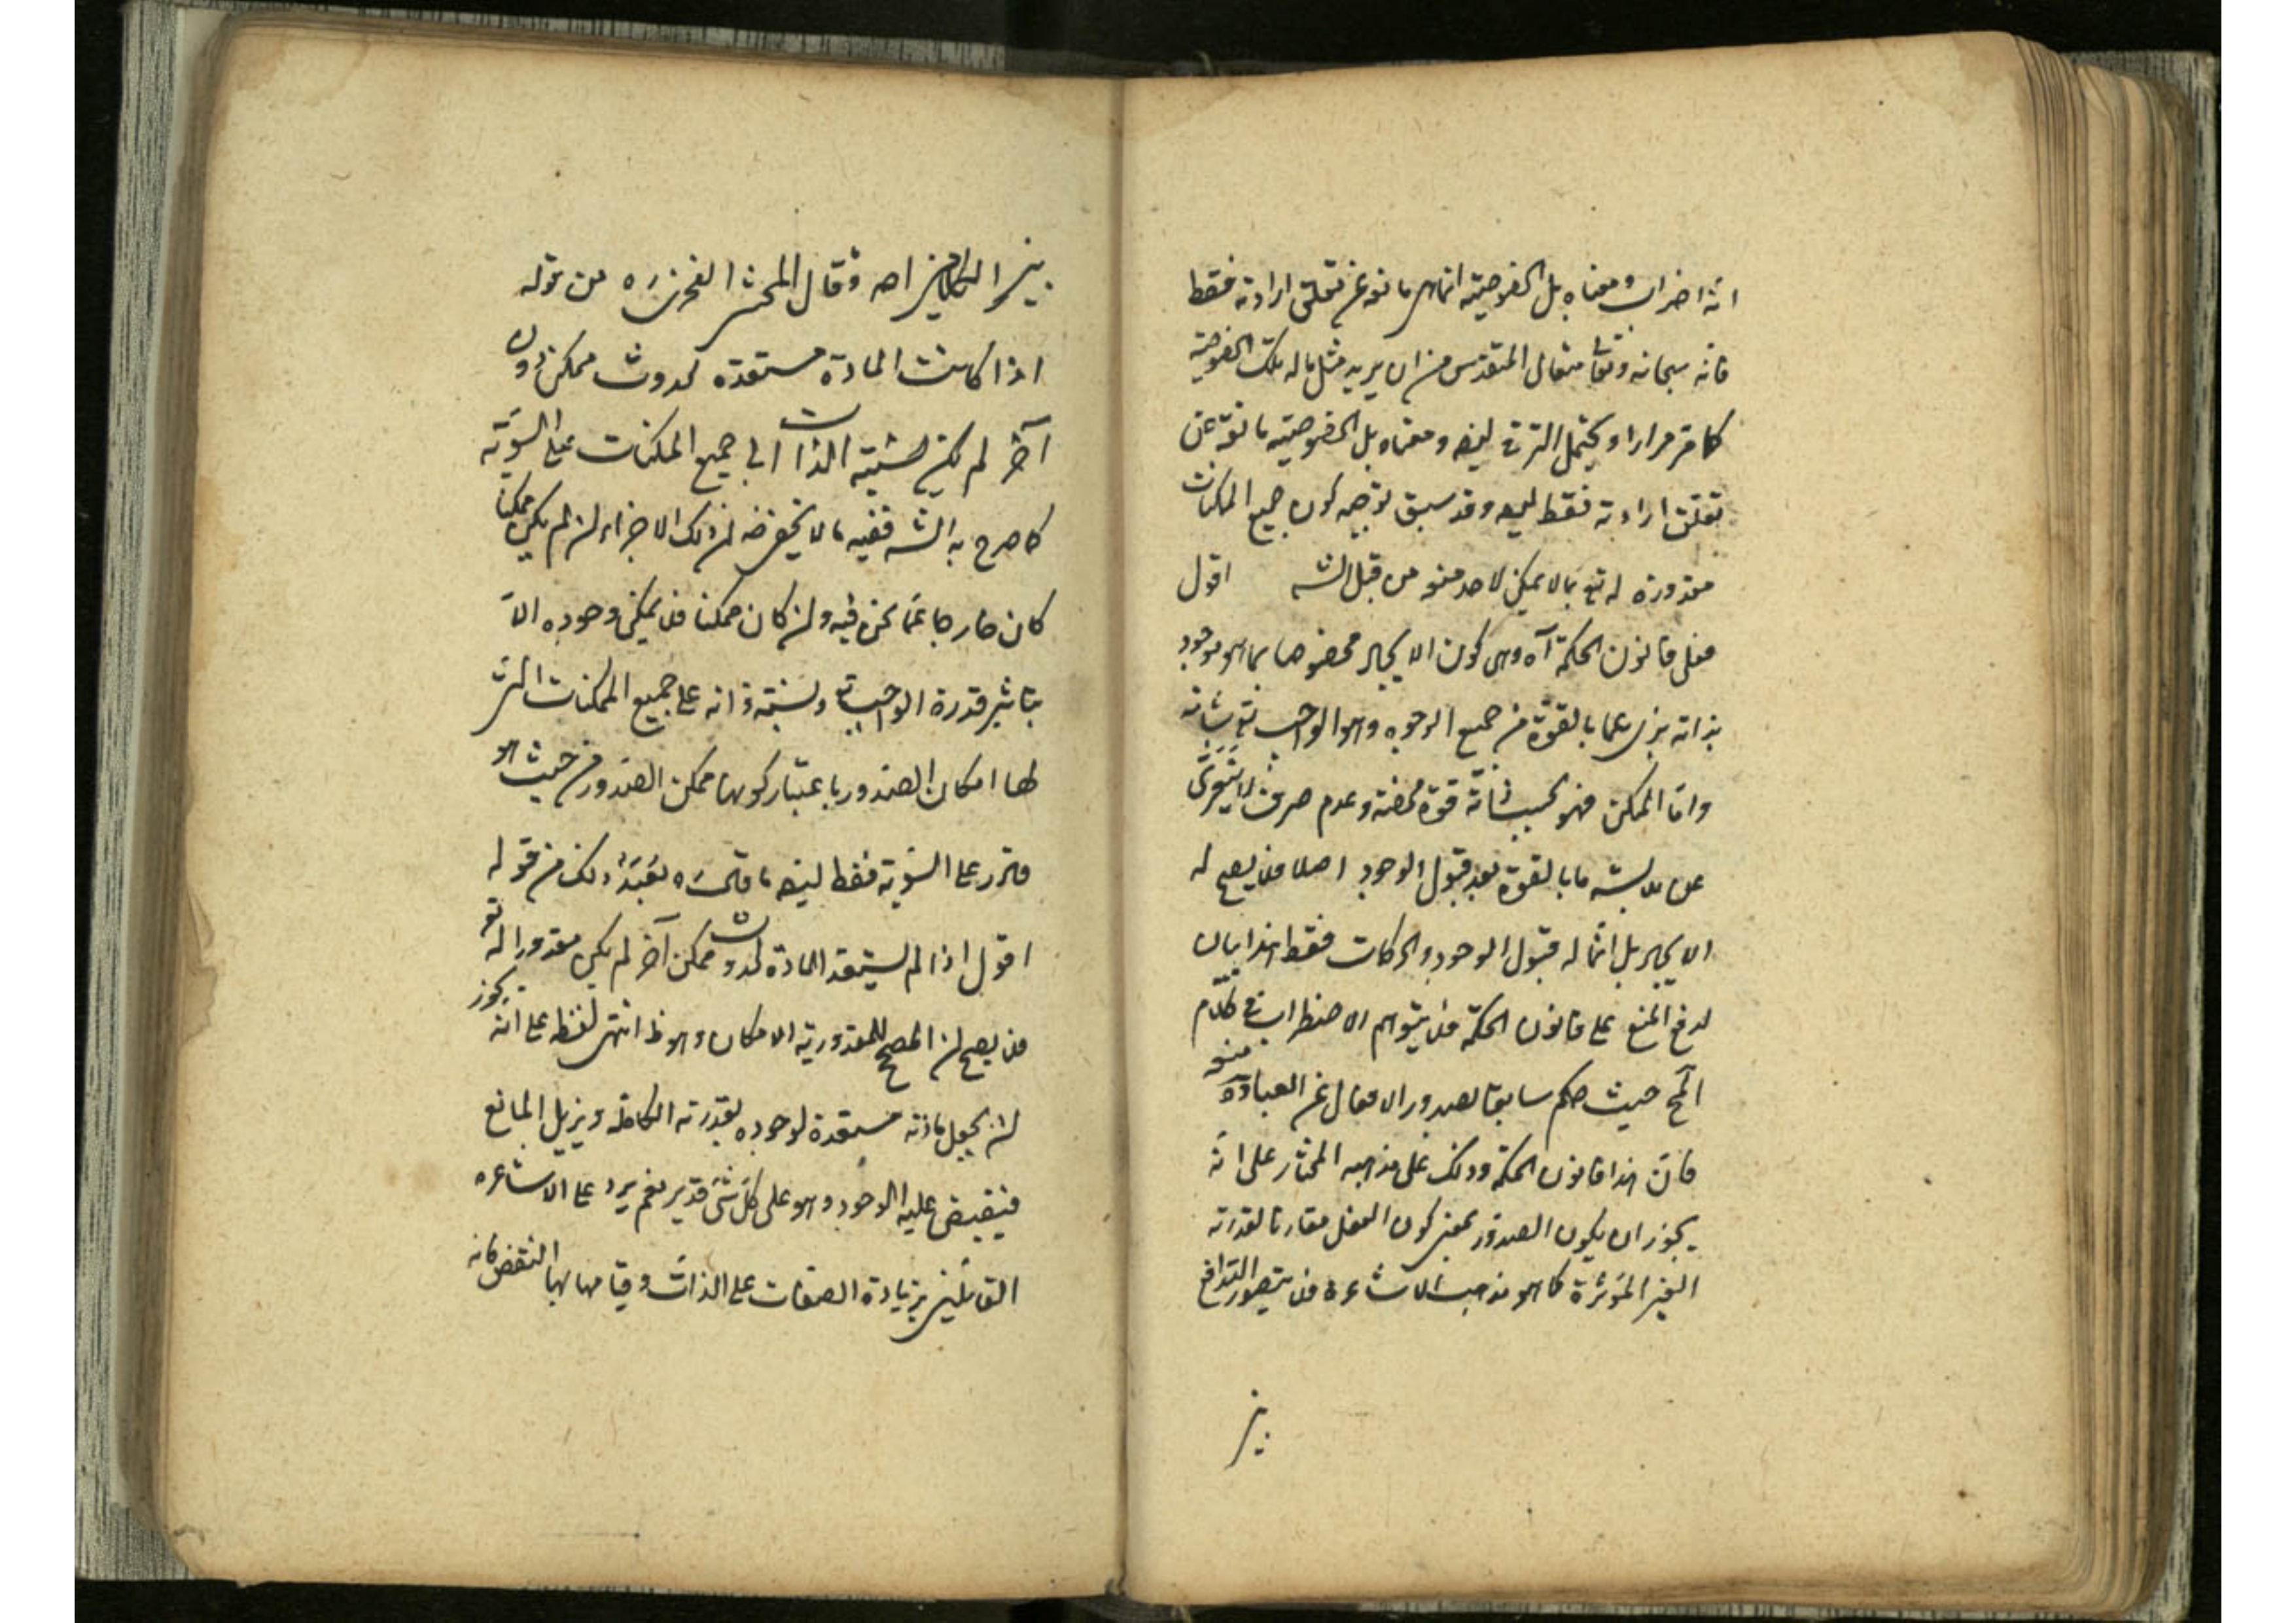 انه اضراب ومعناه بل الخصوصيته انما هى مانعه عن تعلق ارادته فقط
فانه سبحانه وتعالى متعال المتقدس من ان يريد مثل ماله تلك الخصوصية
كما مر مرارا ويحتمل الترقى ايضا ومعناه بل الخصوصيته مانعة عن
تعلق ارادته فقط ايضا وقد سبق توجيه كون جميع الممكنات
مقدورة له تع بما لا يمكن لاحد منعه من قبل الشه اقول
فعلى قانون الحكمة آه وهى كون الايجاد مخصوصا بما هو موجود
بذاته برى عما بالقوة من جميع الوجوه وهو الواجب تع شانه
واما الممكن فهو بحسب ذاته قوة محضة وعدم صرف لا يتعرى
عن ملابسة ما بالقوة بعد قبول الوجود اصلا فلا يصح له
الايجاد بل انما له قبول الوجود والحركات فقط هذا بيان
لدفع المنع على قانون الحكمة فلا يتوهم الاضطراب فى كلام
المح حيث حكم سابقا بصدور الافعال عن العباد وههنا منعه
فان هذا قانون الحكمة وذلك على مذهبه المختار على انه
يجوز ان يكون الصدور بمعنى كون الفعل مقارنا لقدرته
الغير المؤثرة كما هو مذهب الاشاعرة فلا يتصور التدافع
بين
بين الكلامين اه وقال المحشى الفخرى ره من قوله
اذا كانت المادة مستعدة لحدوث ممكن دون
آخر لم يكن نسبته الذات الى جميع الممكنات على السوية
كما صرح به الشه ففيه ما لا يخفى فنه لن ذلك الاخر لن لم يكن ممكنا
كان خارجا عما نحن فيه ولن كان ممكنا فلا يمكن وجوده الا
بتاثير قدرة الواجب تع ونسبته ذاته على جميع الممكنات التى
لها امكان الصدور باعتبار كونها ممكن الصدور من حيث هو
مقرر على السوية فقط ايضا ما قاله ره بعيد ذلك من قوله
اقول اذا لم يستعد المادة لحدوث ممكن آخر لم يكن مقدورا له تع
فلا يصح لن المصحح للمقدورية الامكان وهو ظ انتهى لفظه على انه يجوز
لن يجعل مادته مستعدة لوجوده بقدرته الكاملة ويزيل المانع
فيفيض عليه الوجود وهو على كل شى قدير نعم يرد على الاشاعره
القائلين بزيادة الصفات على الذات وقيامها بها النقض كانه